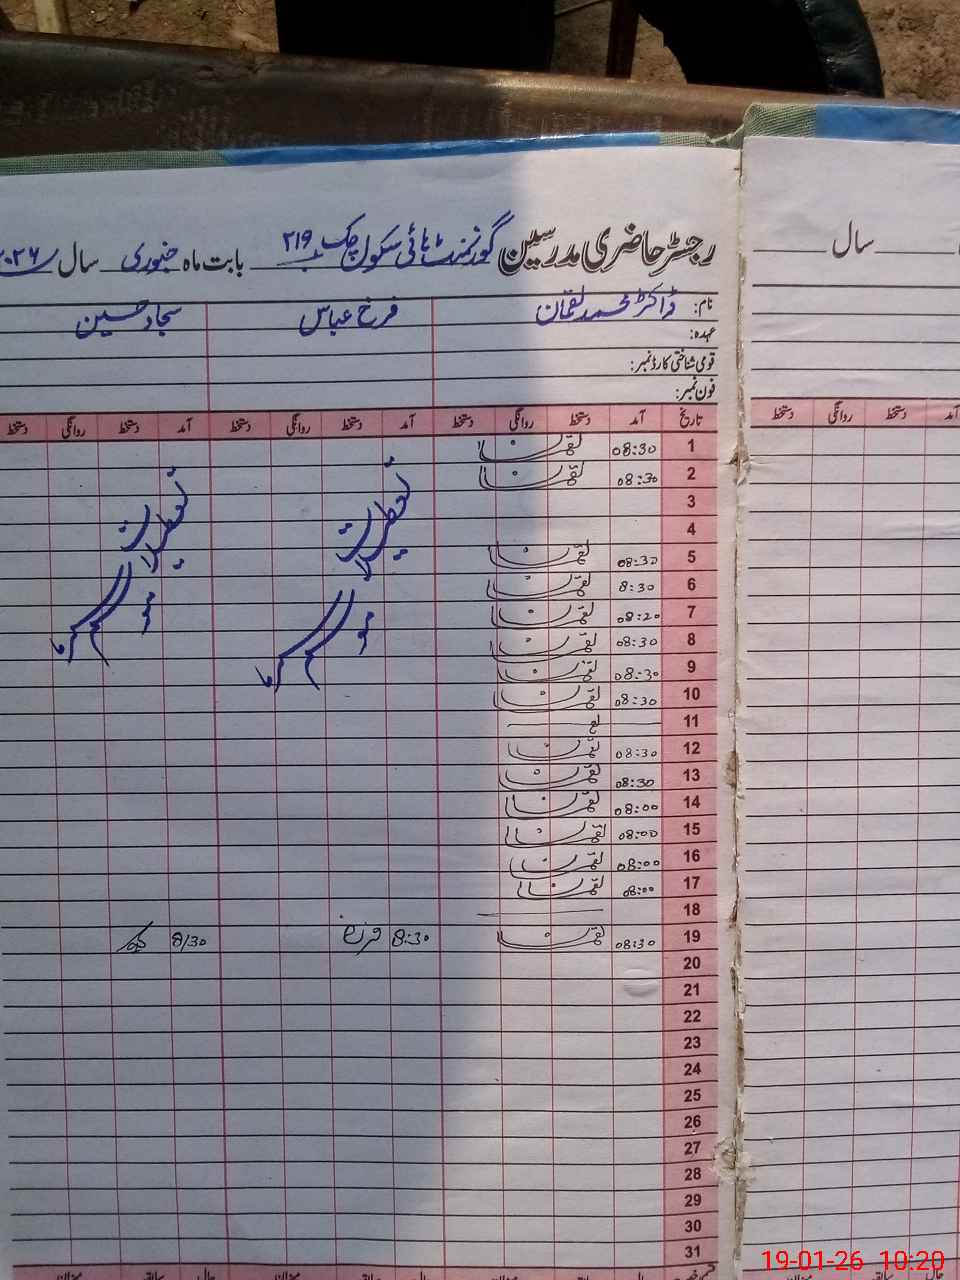 رجسٹر حاضری مدرسین گورنمنٹ ہائی سکول چک ۲۱۹ ب بابت ماہ جنوری سال ۲۰۲۶
سال
نام: ڈاکٹر محمد لقمان فرخ عباس سجاد حسین
عہدہ:
قومی شناختی کارڈ نمبر:
فون نمبر:
تاریخ آمد دستخط روانگی دستخط آمد دستخط روانگی دستخط آمد دستخط روانگی دستخط
آمد دستخط روانگی دستخط
1 08:30 لقمان
2 08:30 لقمان
3
4
5 08:30 لقمان
6 8:30 لقمان
7 08:20 لقمان
8 08:30 لقمان
9 08:30 لقمان
10 08:30 لقمان
11
12 08:30 لقمان
13 08:30 لقمان
14 08:00 لقمان
15 08:00 لقمان
16 08:00 لقمان
17 08:00 لقمان
18
19 08:30 لقمان 8:30 فرخ 8/30
20
21
22
23
24
25
26
27
28
29
30
31
تعطیلات موسم سرما
تعطیلات موسم سرما
19-01-26 10:20